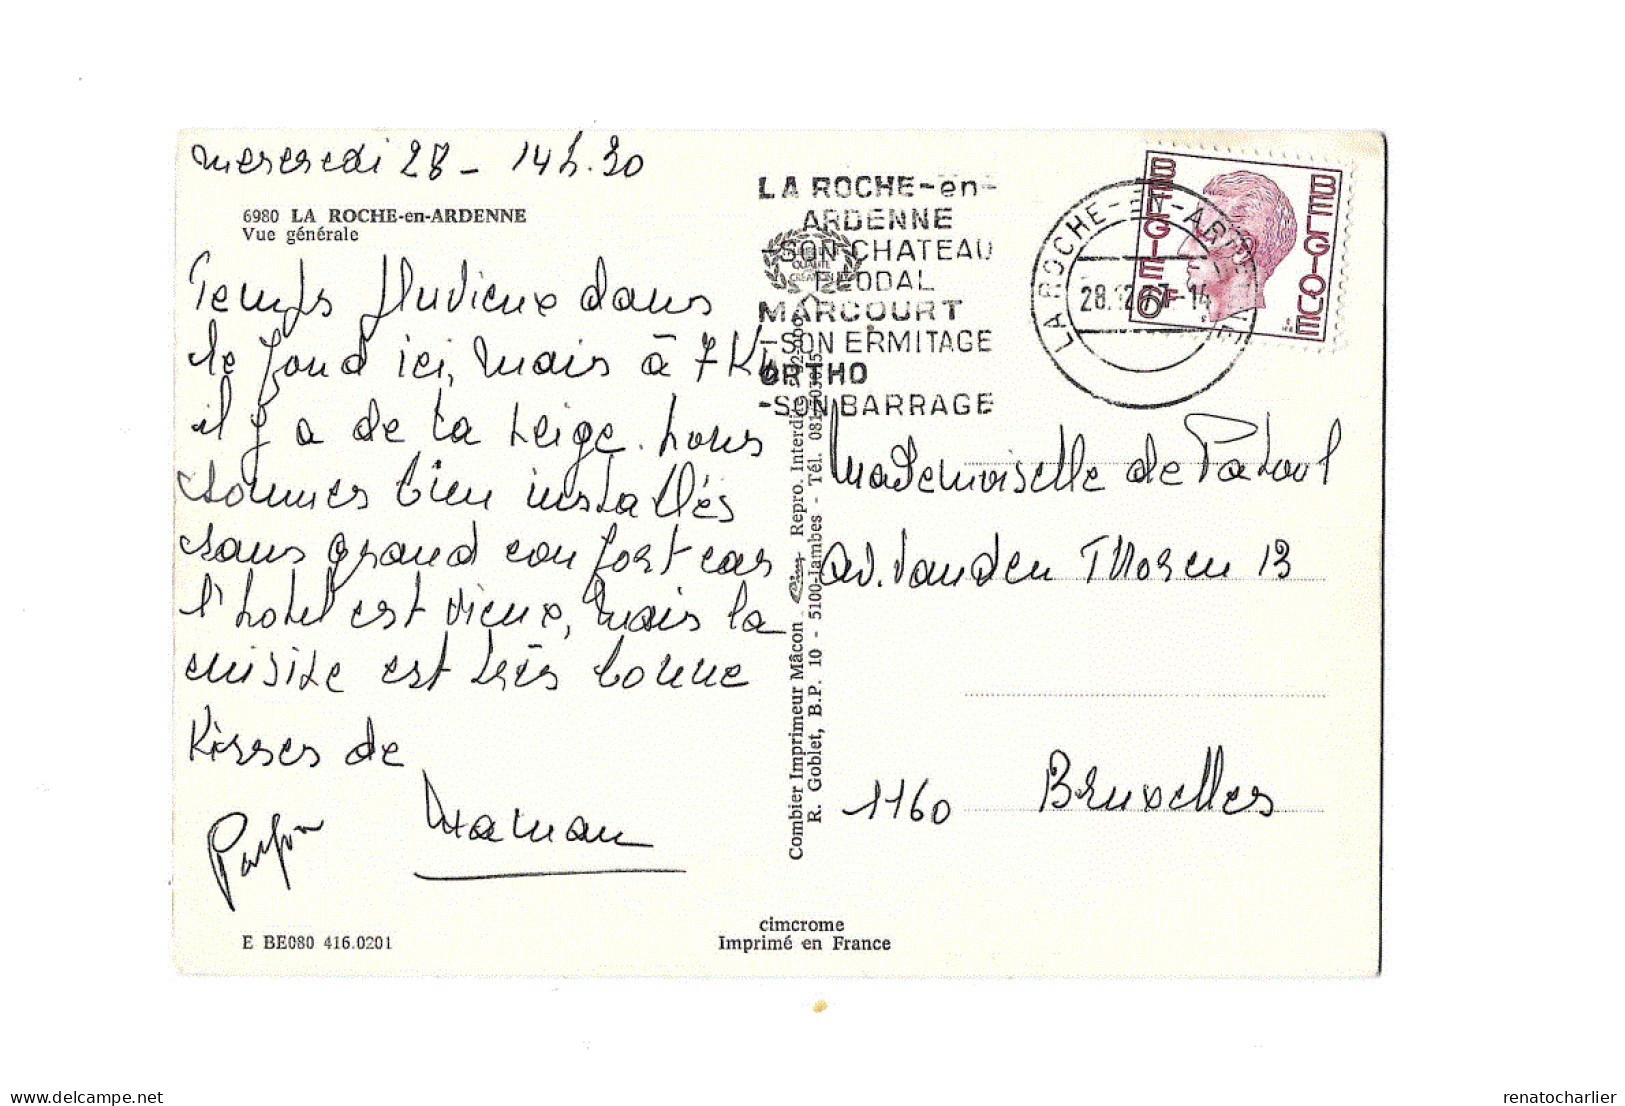 mercredi 28 - 14h.30
6980 LA ROCHE-en-ARDENNE
Vue générale
Temps pluvieux dans
le fond ici, mais à 7 Km
il y a de la neige. Nous
sommes bien installés
sans grand confort car
l'hotel est vieux, mais la
cuisine est très bonne
Kisses de
Maman
E BE080 416.0201
cimcrome
Imprimé en France
Combier Imprimeur Mâcon Repro. Interdite
R. Goblet, B.P. 10 - 5100-Jambes - Tél. 081
LA ROCHE-en-
ARDENNE
-SON CHATEAU
FEODAL
MARCOURT
-SON ERMITAGE
ORTHO
-SON BARRAGE
QUALITE
CREATION
LA ROCHE-EN-ARDENNE
28.12.77-14
BELGIE
BELGIQUE
6F
Mademoiselle de Patoul
av. Van den Thoren 13
1160 Bruxelles
delcampe.net
renatocharlier